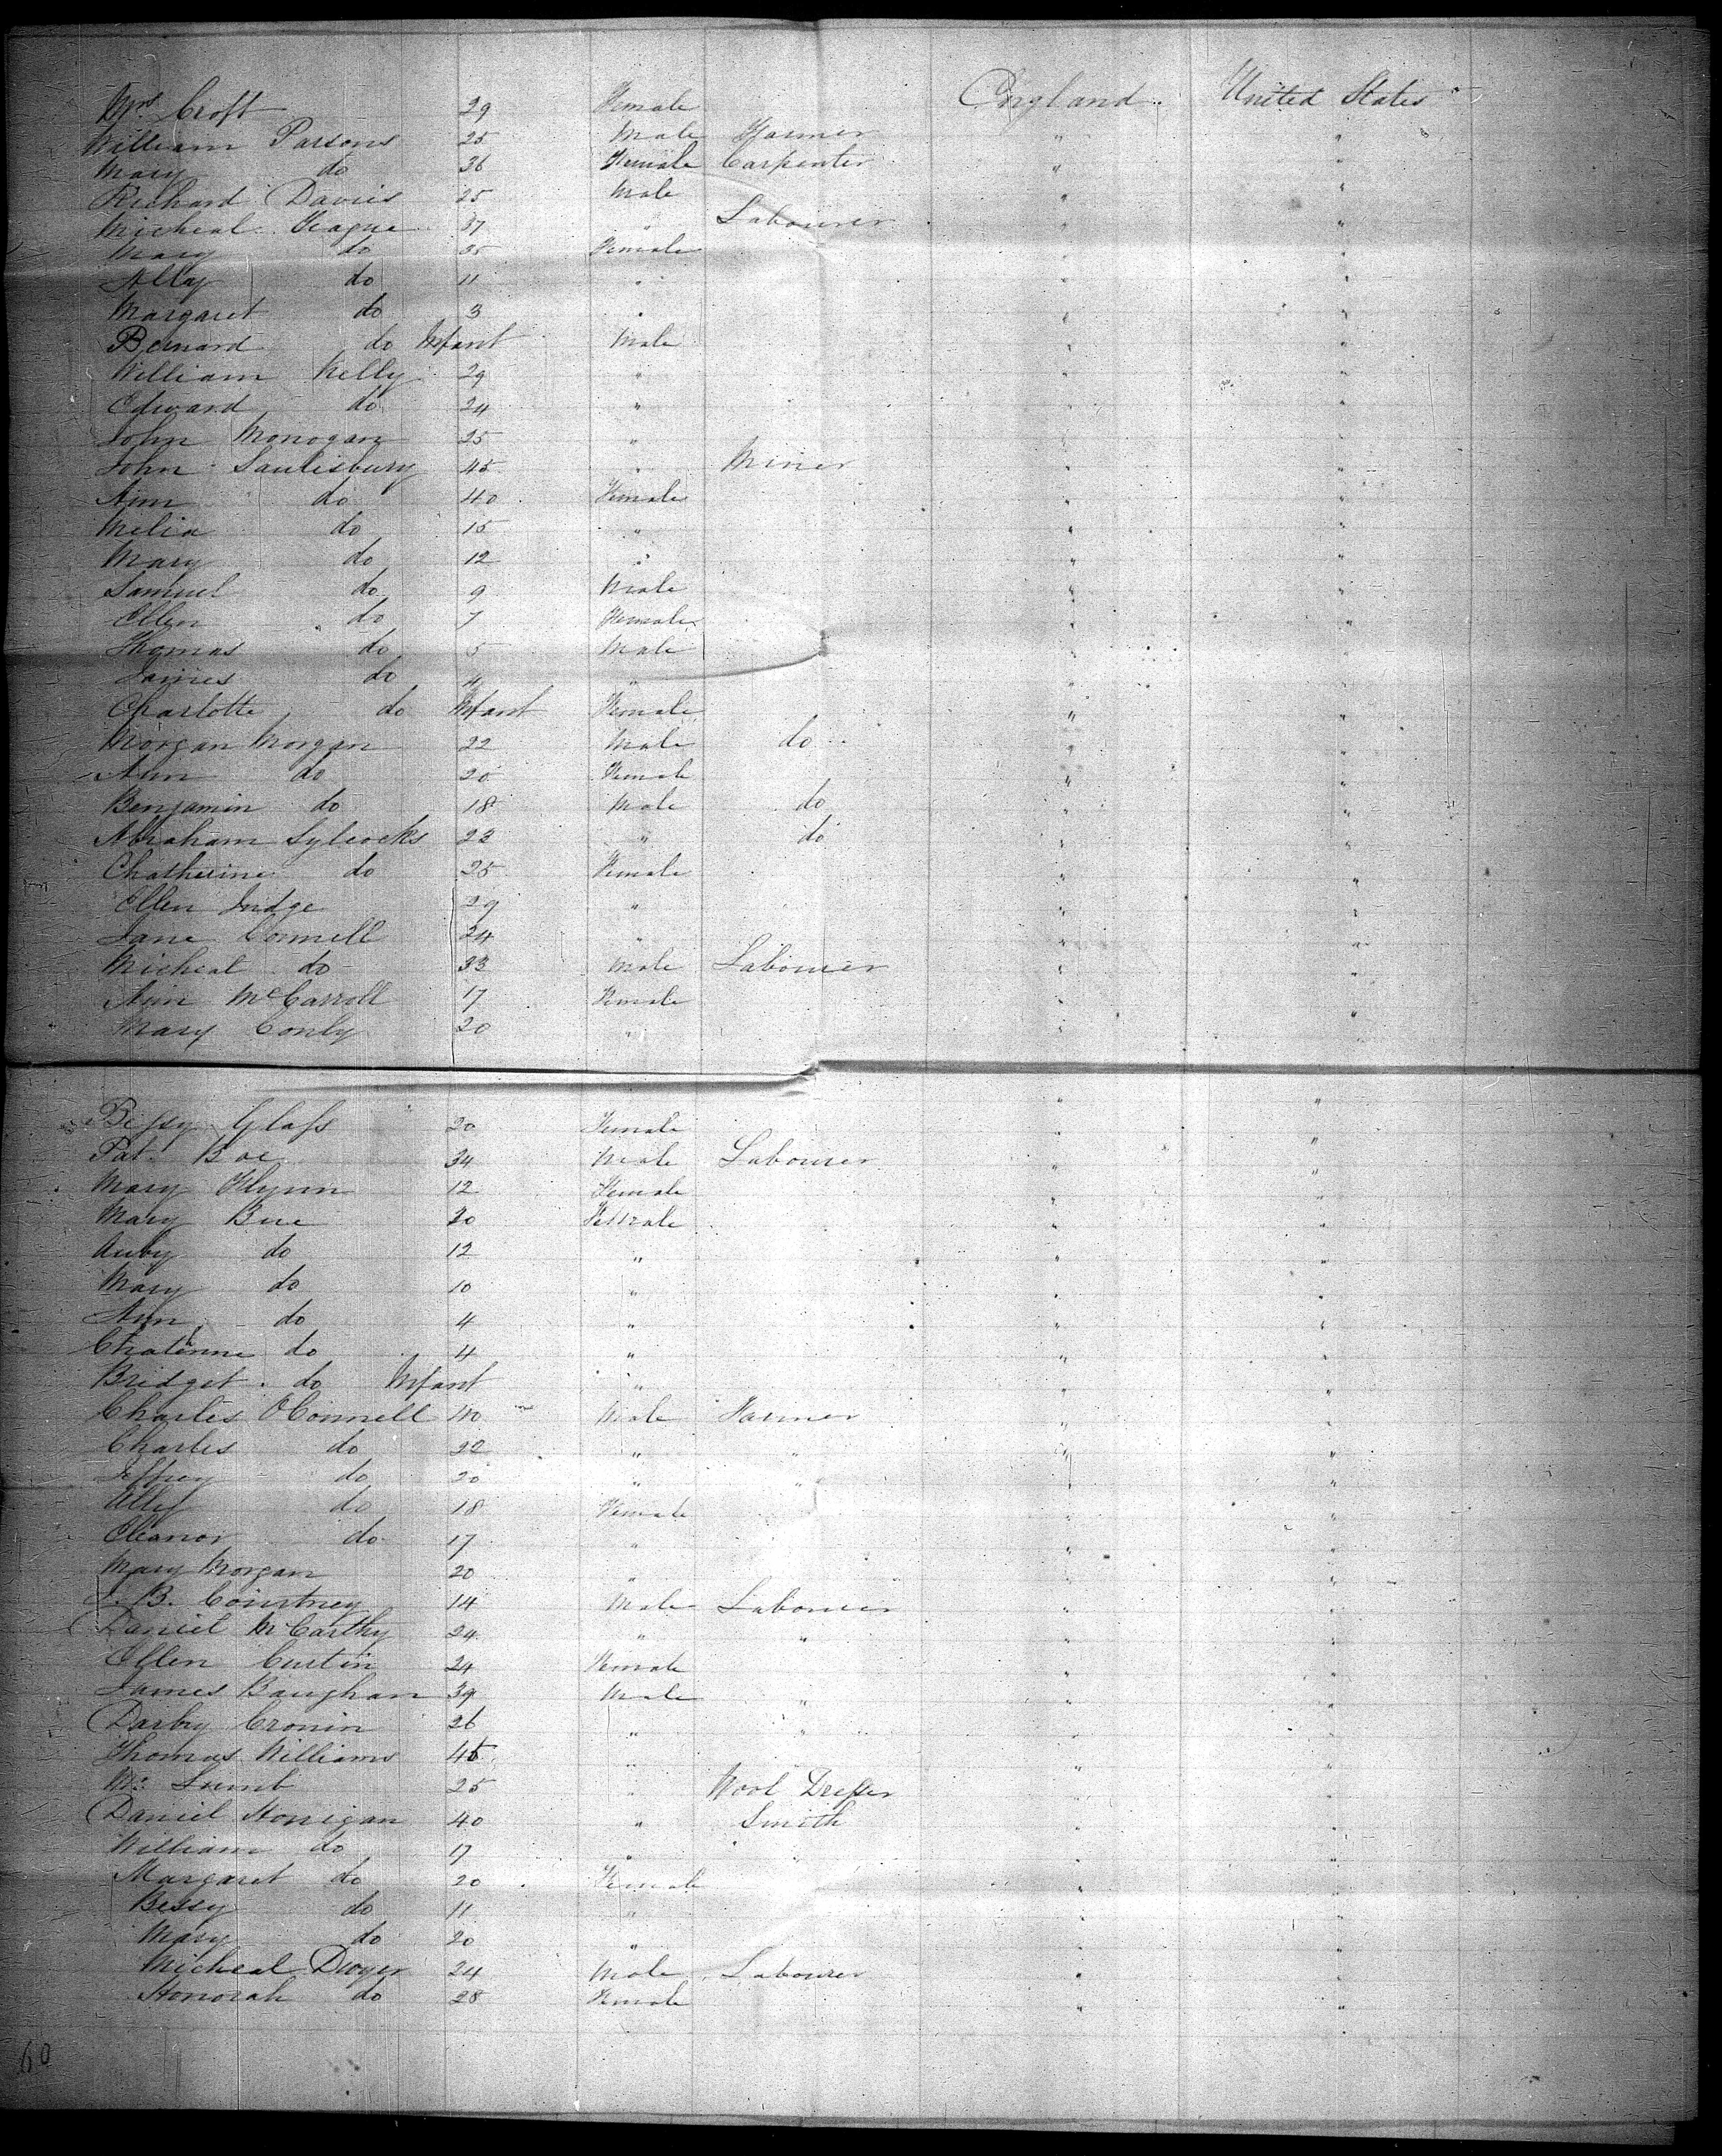 Mrs. Croft 29 Female England United States
William Parsons 25 Male Farmer " "
Mary do 36 Female Carpenter " "
Richard Davies 25 Male " "
Micheal Teague 37 " Labourer " "
Mary do 35 Female " "
Ally do 11 " " "
Margaret do 3 " " "
Bernard do Infant Male " "
William Kelly 29 " " "
Edward do 24 " " "
John Monogan 25 " " "
John Saulisbury 45 " Miner " "
Ann do 40 Female " "
Melia do 15 " " "
Mary do 12 " " "
Samuel do 9 Male " "
Ellen do 7 Female " "
Thomas do 5 Male " "
James do 4 " " "
Charlotte do Infant Female " "
Morgan Morgan 22 Male do " "
Ann do 20 Female " "
Benjamin do 18 Male do " "
Abraham Sylcocks 23 " do " "
Chatherine do 25 Female " "
Ellen Judge 29 " " "
Jane Connell 34 " " "
Micheal do 33 Male Labourer " "
Ann McCarroll 17 Female " "
Mary Conly 20 " " "
Bessy Glass 20 Female " "
Pat. Boe 34 Male Labourer " "
Mary Flynn 12 Female " "
Mary Bue 30 Female " "
do 12 " " "
Mary do 10 " " "
Ann do 4 " " "
Chaterine do 4 " " "
Bridget do Infant " " "
Charles OConnell 40 Male Farmer " "
Charles do 22 " " " "
Jeffrey do 20 " " " "
do 18 Female " "
Eleanor do 17 " " "
Mary Morgan 20 " " "
J. B. Courtney 14 Male Labourer " "
Daniel McCarthy 24 " " " "
Ellen Curtin 24 Female " "
James Baughan 39 Male " " "
Darby Cronin 26 " " " "
Thomas Williams 45 " " "
Mr. Lumb 25 " Wool Dresser " "
Daniel Honigan 40 " Smith " "
William do 17 " " " "
Margaret do 20 Female " "
Bessy do 11 " " "
Mary do 20 " " "
Micheal Dwyer 24 Male Labourer " "
Honorah do 28 Female " "
60